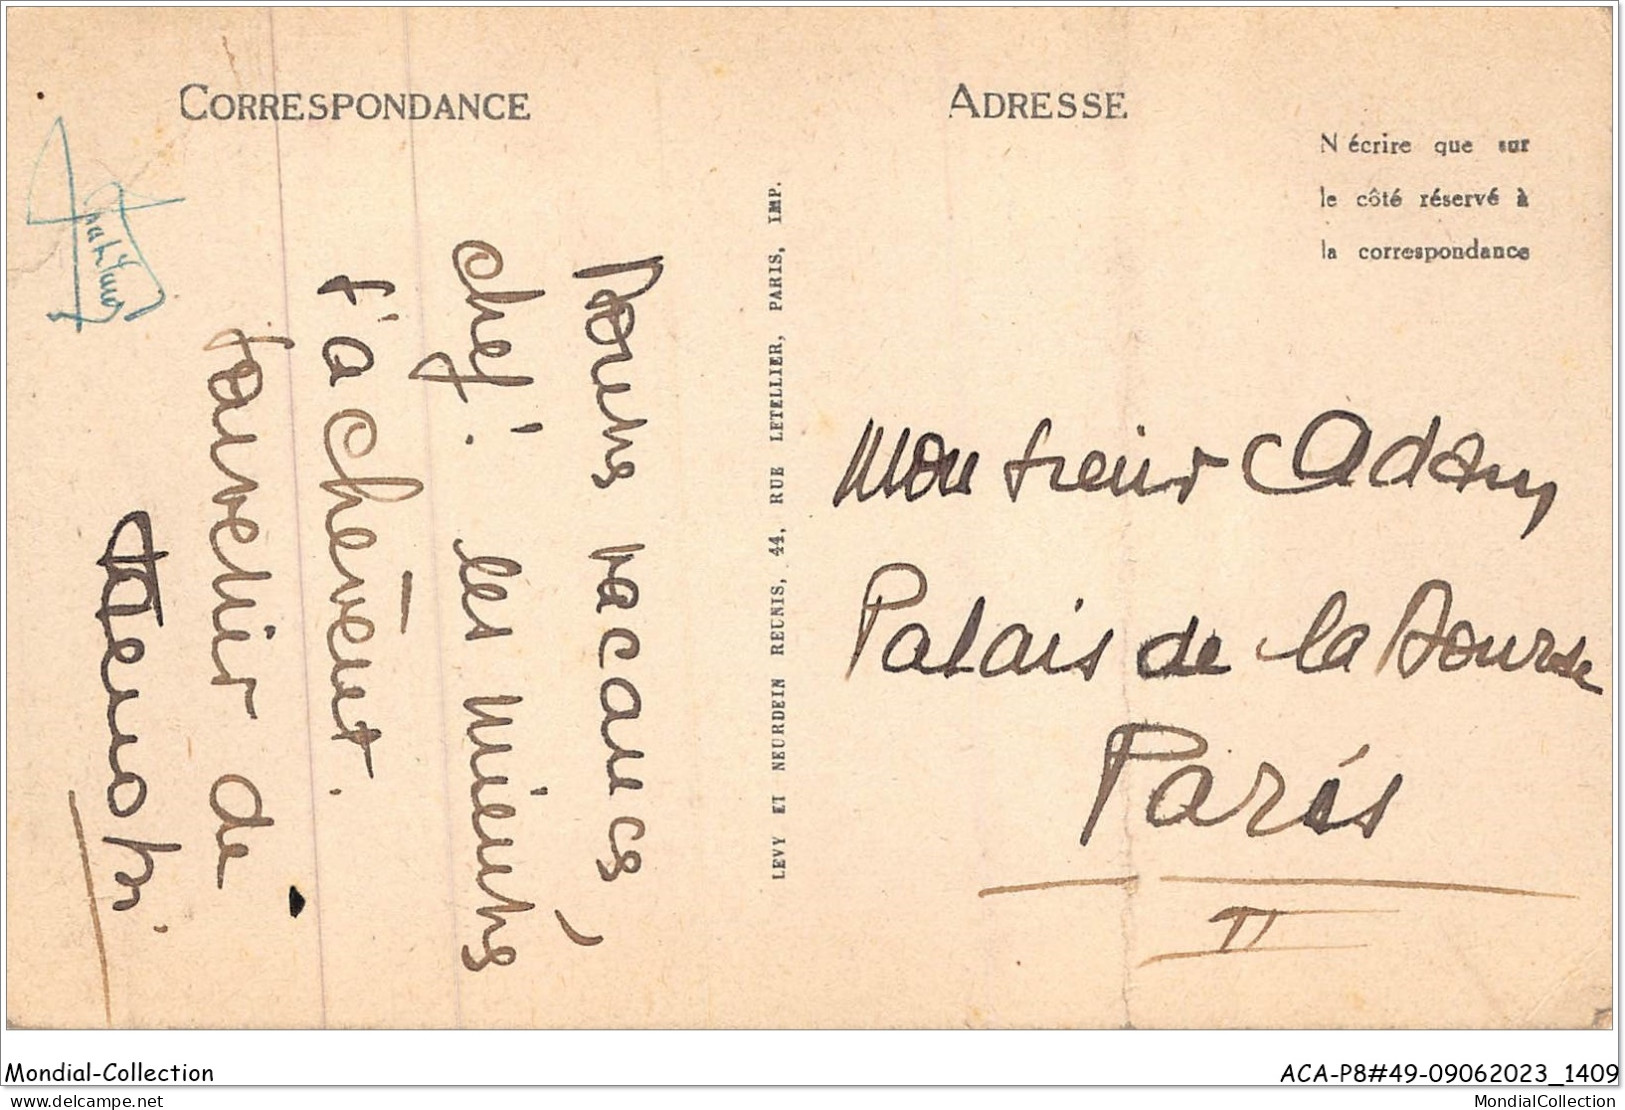 CORRESPONDANCE
ADRESSE
N'écrire que sur
le côté réservé à
la correspondance
LEVY ET NEURDEIN REUNIS, 44, RUE LETELLIER, PARIS, IMP.
Bonnes vacances,
chef! les miennes
s'achèvent.
souvenir de
Monsieur Adam
Palais de la Bourse
Paris
II
Mondial-Collection
ACA-P8#49-09062023_1409
delcampe.net
MondialCollection